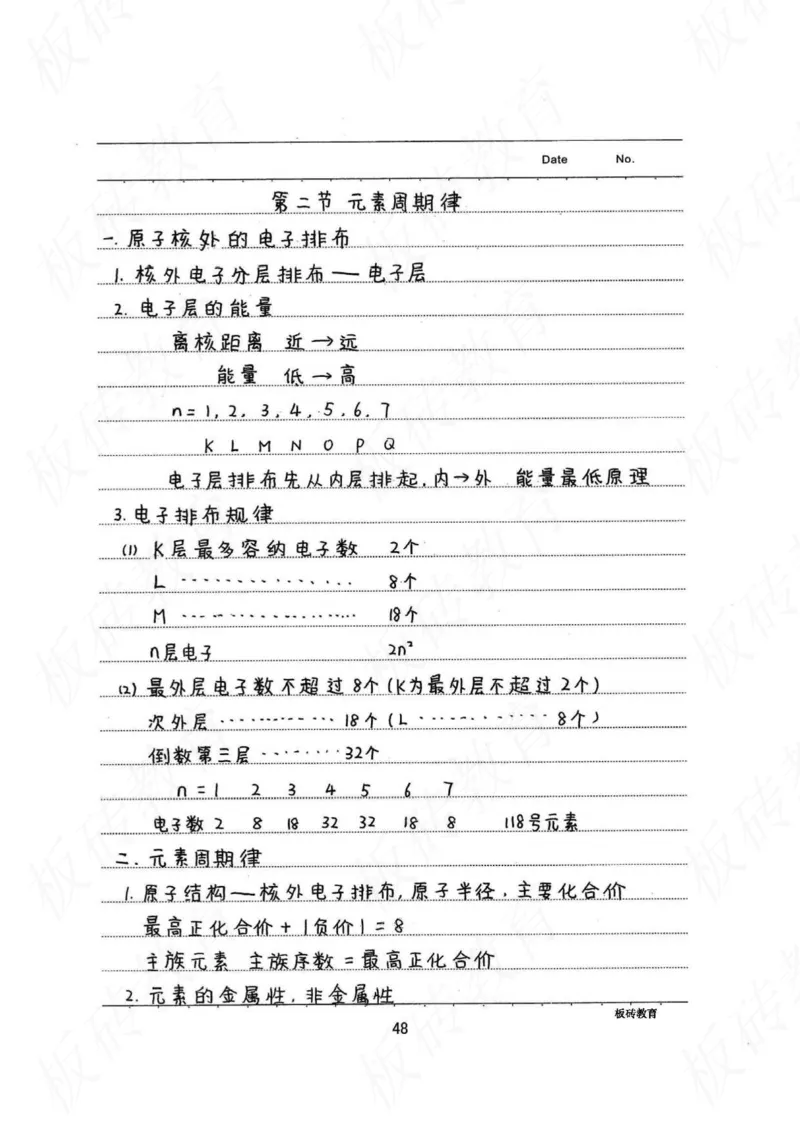 Date No.
第二节 元素周期律
一. 原子核外的电子排布
1. 核外电子分层排布 — 电子层
2. 电子层的能量
离核距离 近 → 远
能量 低 → 高
n = 1, 2, 3, 4, 5, 6, 7
K L M N O P Q
电子层排布先从内层排起, 内→外 能量最低原理
3. 电子排布规律
(1) K层最多容纳电子数 2个
L ·············· 8个
M ·················· 18个
n层电子 2n²
(2) 最外层电子数不超过8个(K为最外层不超过2个)
次外层 ············· 18个(L ············ 8个)
倒数第三层 ········ 32个
n = 1 2 3 4 5 6 7
电子数 2 8 18 32 32 18 8 118号元素
二. 元素周期律
1. 原子结构 — 核外电子排布, 原子半径, 主要化合价
最高正化合价 + |负价| = 8
主族元素 主族序数 = 最高正化合价
2. 元素的金属性, 非金属性
板砖教育
48